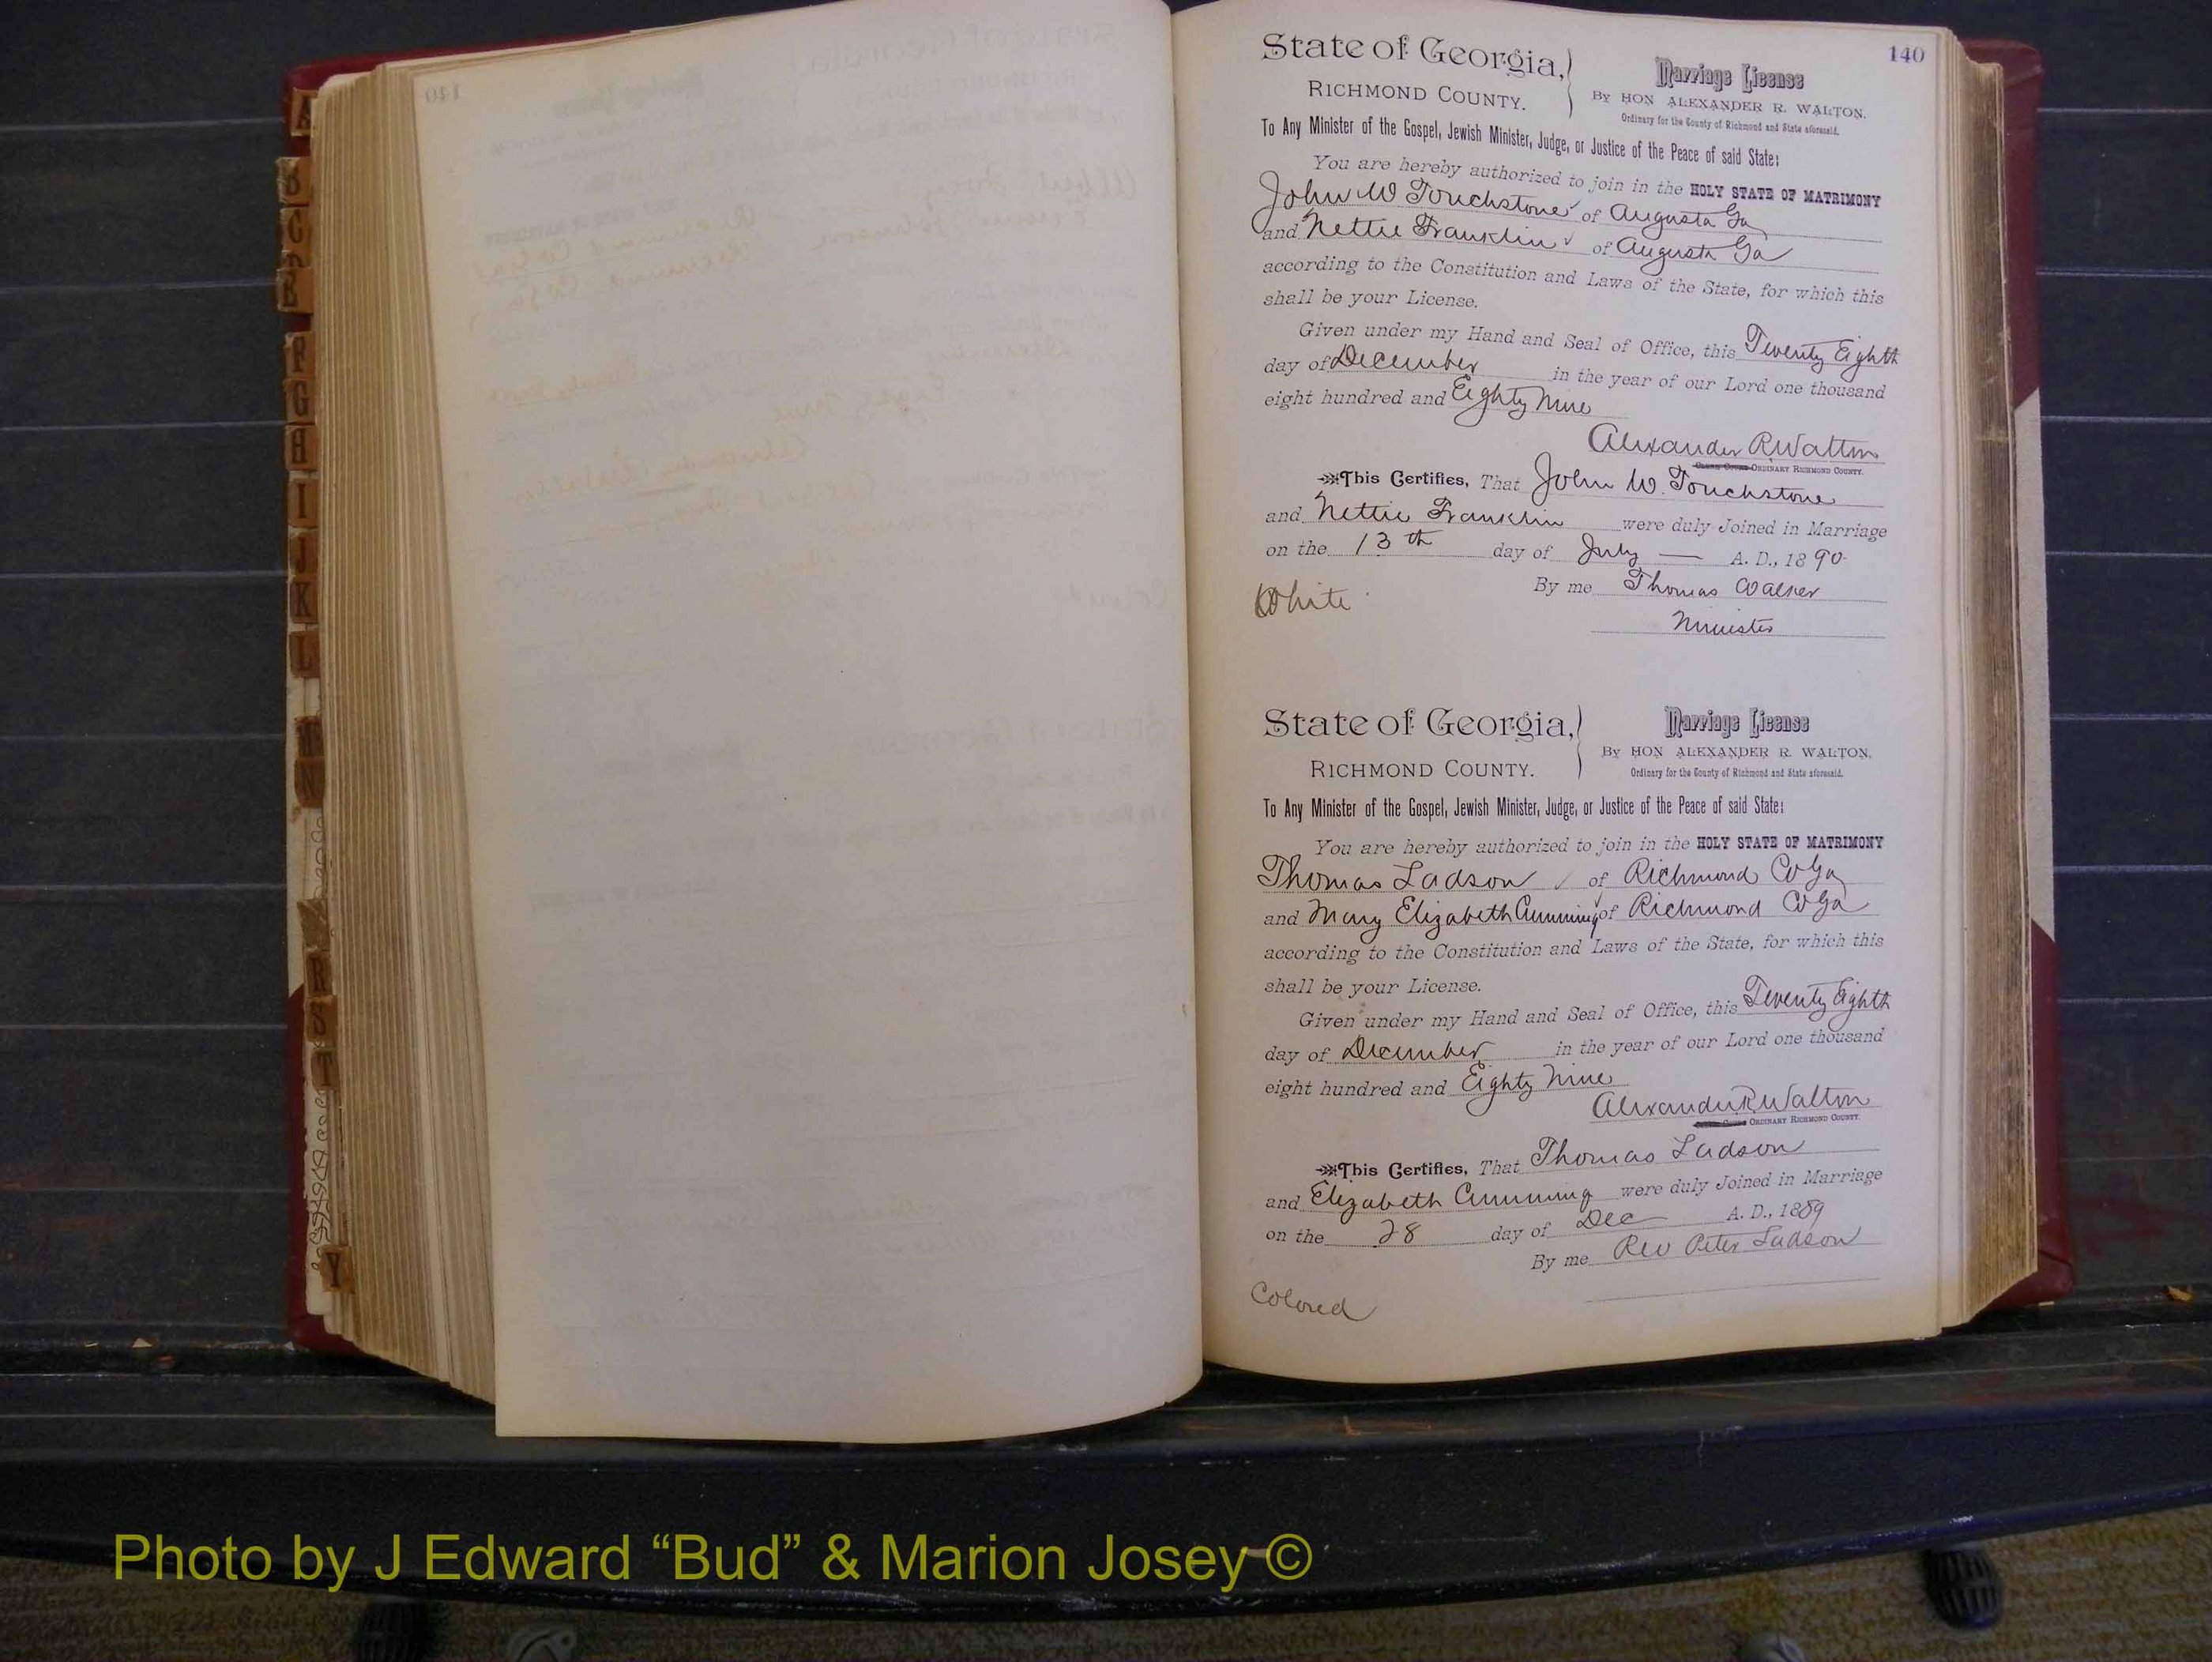 140
State of Georgia,
RICHMOND COUNTY.
Marriage License
By HON ALEXANDER R. WALTON.
Ordinary for the County of Richmond and State aforesaid.
To Any Minister of the Gospel, Jewish Minister, Judge, or Justice of the Peace of said State:
You are hereby authorized to join in the HOLY STATE OF MATRIMONY
John W Touchstone of Augusta Ga
and Nettie Franklin of Augusta Ga
according to the Constitution and Laws of the State, for which this
shall be your License.
Given under my Hand and Seal of Office, this Twenty Eighth
day of December in the year of our Lord one thousand
eight hundred and Eighty Nine
Alexander R Walton
ORDINARY RICHMOND COUNTY.
This Certifies, That John W. Touchstone
and Nettie Franklin were duly Joined in Marriage
on the 13th day of July A. D., 1890
By me Thomas Walker
White
Minister
State of Georgia,
RICHMOND COUNTY.
Marriage License
By HON ALEXANDER R. WALTON.
Ordinary for the County of Richmond and State aforesaid.
To Any Minister of the Gospel, Jewish Minister, Judge, or Justice of the Peace of said State:
You are hereby authorized to join in the HOLY STATE OF MATRIMONY
Thomas Ladson of Richmond Co Ga
and Mary Elizabeth Cumming of Richmond Co Ga
according to the Constitution and Laws of the State, for which this
shall be your License.
Given under my Hand and Seal of Office, this Twenty Eighth
day of December in the year of our Lord one thousand
eight hundred and Eighty Nine
Alexander R Walton
ORDINARY RICHMOND COUNTY.
This Certifies, That Thomas Ladson
and Elizabeth Cumming were duly Joined in Marriage
on the 28 day of Dec A. D., 1889
By me Rev Peter Ladson
Colored
A
B
C
E
F
G
H
I
J
K
L
M
N
R
S
T
Y
Photo by J Edward “Bud” & Marion Josey ©